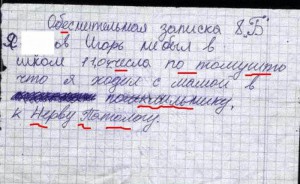 Обеснительная записка 8,Б"
Я в Игорь небыл в
школи 11,0 числа по томушто
что я ходил с мамой в
к Нерву Патологу.